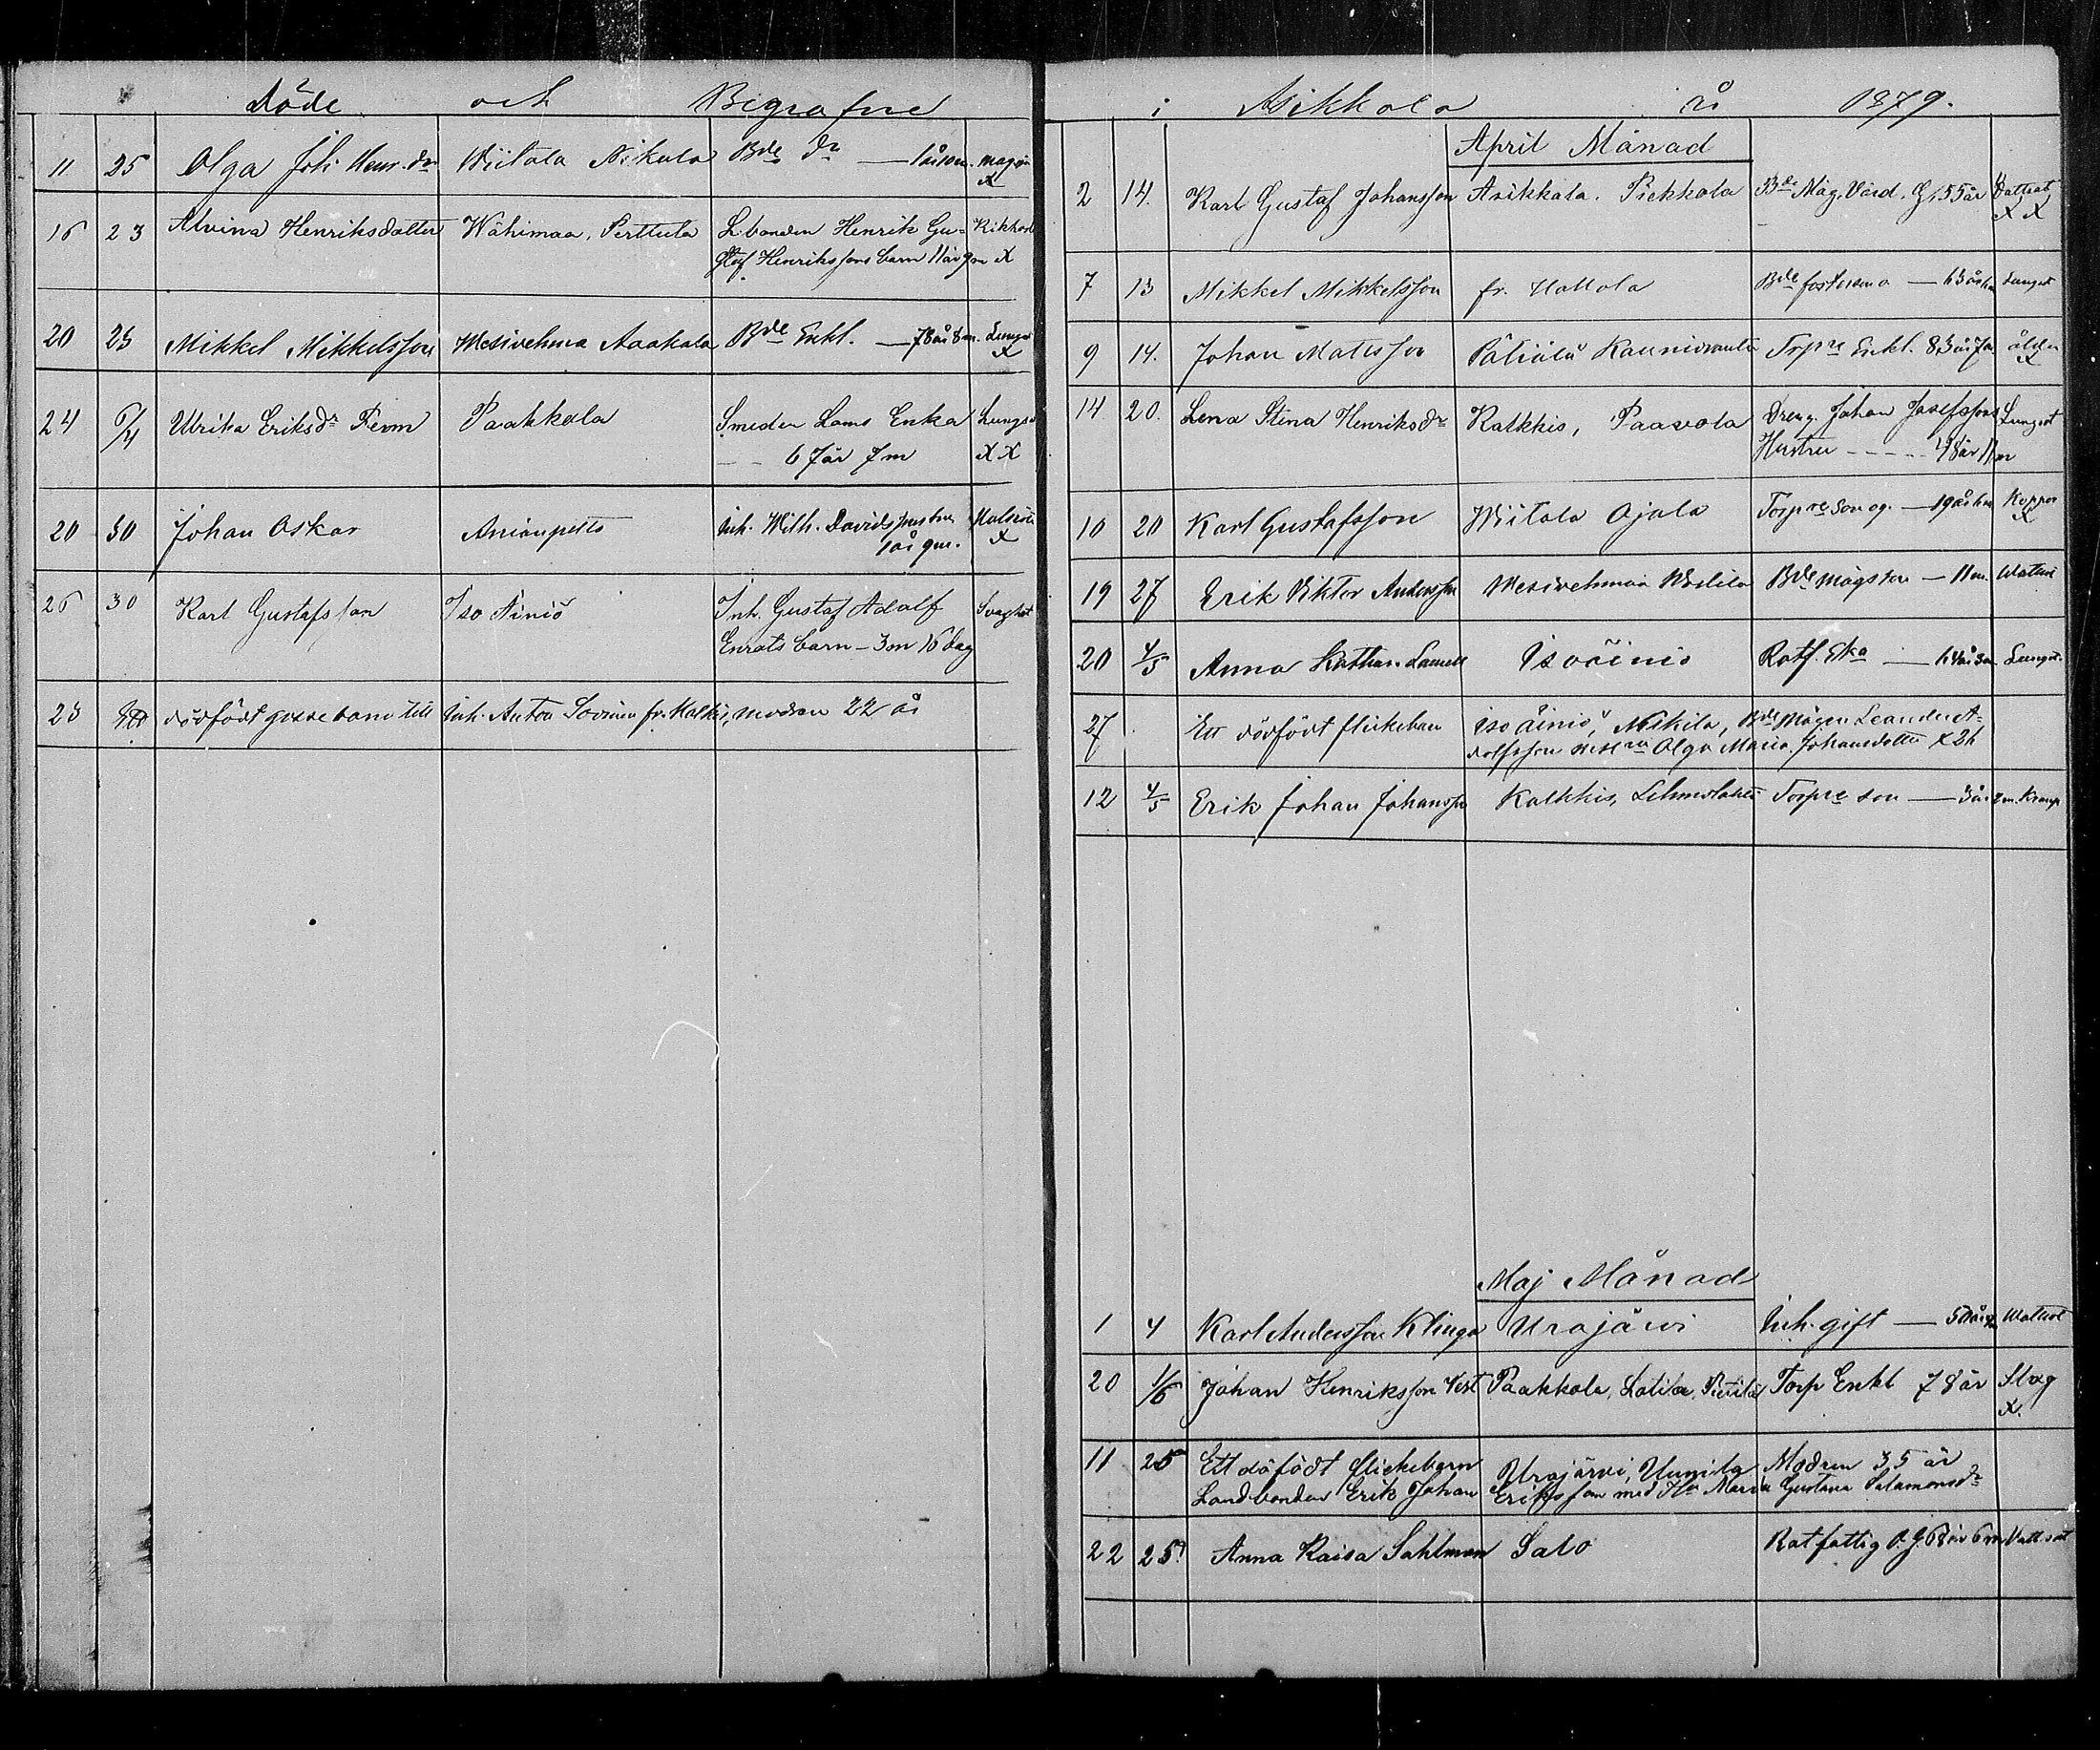 Döde och Begrafne
11 25 Olga Joh. Henr. dr Wiitala Nikula Bde dr — 1 år 10 m. magin
X
16 23 Alvina Henriksdotter Wähimaa, Perttula L.bonden Henrik Gu- Kikhost
staf Henrikssons barn 11 år 9 m X
20 23 Mikkel Mikkelsson Mesivehmaa Aakala Bde Enkl. — 78 år 8 m. Lungs
X
24 6/4 Ulrika Eriksdr Perm Paakkola Smeden Lams Enka Lungs
— — 67 år 7 m X X
20 30 Johan Oskar Anianpelto Inh. Wilh. Davidssons
1 år 9 m. X
26 30 Karl Gustafsson Iso Äiniö Inh. Gustaf Adolf Svaghet
Enrots barn – 3 m 16 dag
23 dödfödt gossebarn till Inh. Anton Sovinen fr. Kalkis, modren 22 år
i Asikkala år 1879.
April Månad
2 14. Karl Gustaf Johansson Asikkala. Piekkola Bde Måg. Värd. G. 55 år Vattsot
X X
7 13 Mikkel Mikkelsson fr. Hollola Bde fosterson — 63 år Lungst
9 14. Johan Matsson Pätiälä Kaunioranta Torpre Enkl. 83 år 7 m. ålder
X
14 20. Lena Stina Henriksdr Kalkkis, Paavola Dreng. Johan Josefssons Lungsot
Hustru - - - - - 48 år 11 m
10 20 Karl Gustafsson Wiitala Ojala Torpre Son og. — 19 år Koppor
X
19 27 Erik Viktor Andersson Mesivehmaa Bde mågs son — 11 m. Wattsot
20 4/5 Anna Kathar. Lamell Isoäiniö Rotf. Eka — 64 år 3 m. Lungst.
27 Ett dödfödt flickebarn Iso äiniö, Nikila, Bde Mågen Leander A-
dolfsson Olga Maria Johansdotter X 2 h
12 4/5 Erik Johan Johansson Kalkkis, Lehmolahti Torpre son — 3 år 2 m. Kramp
Maj Månad
1 4 Karl Andersson Klinga Urajärvi Inh. gift — 50 år Wattsot
20 1/6 Johan Henriksson Vest Paakkola, Lätilä, Pietilä Torp Enkl 78 år Slag
X.
11 25 Ett döfödt flickebarn Urajärvi, Uunila Modren 35 år
Landbonden Erik Johan Eriksson med Hu Maria Gustava Salamonsdr
22 25 Anna Kaisa Sahlman Salo Rotfattig O. G. 68 år 6 m Vattsot